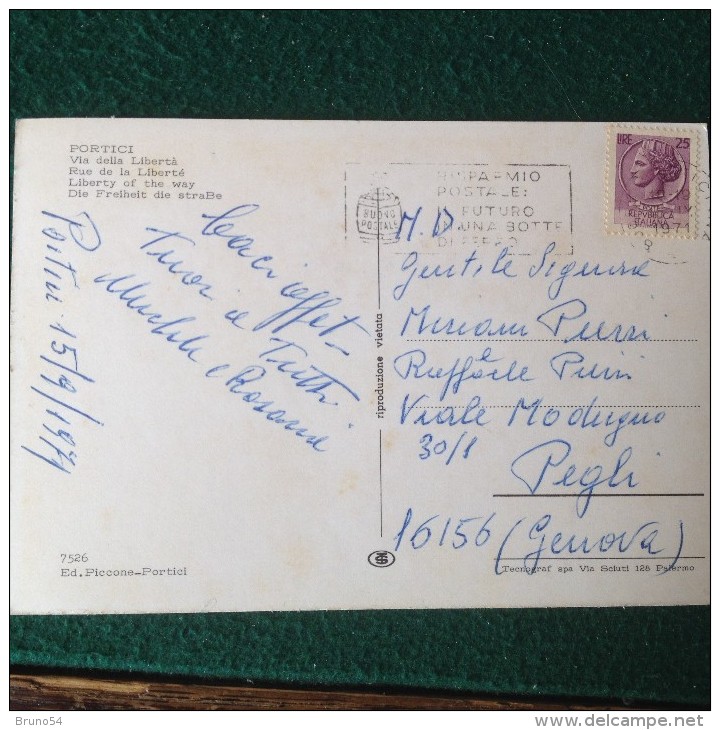 PORTICI
Via della Libertà
Rue de la Liberté
Liberty of the way
Die Freiheit die straBe
LIRE 25
REPVBBLICA
ITALIANA
BUONO
POSTALE
RISPARMIO
POSTALE:
IL FUTURO
IN UNA BOTTE
DI FERRO
1971
Baci affet-
tuosi a Tutti
Michele e Rosaria
Portici 15/9/1971
riproduzione vietata
Gentile Signora
Miriam Pierri
e
Raffaele Pierri
Viale Modugno
30/1
Pegli
16156 (Genova)
7526
Ed. Piccone-Portici
Tecnograf spa Via Sciuti 128 Palermo
Bruno54
delcampe.net